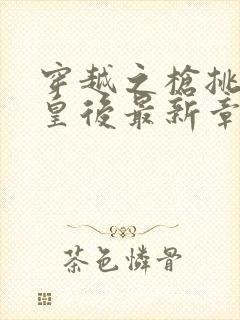 穿越之槍挑
皇後最新章
茶色憐骨